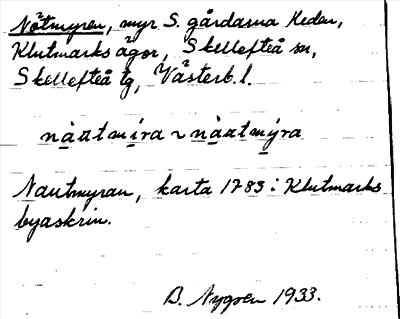 Nötmyren, myr S. gårdarna Heden,
Klutmarks ägor, Skellefteå sn,
Skellefteå tg, Västerb. l.
nàatmíra ~ nàatmýra
Nautmyran, karta 1783 i Klutmarks
byaskrin.
B. Nygren 1933.